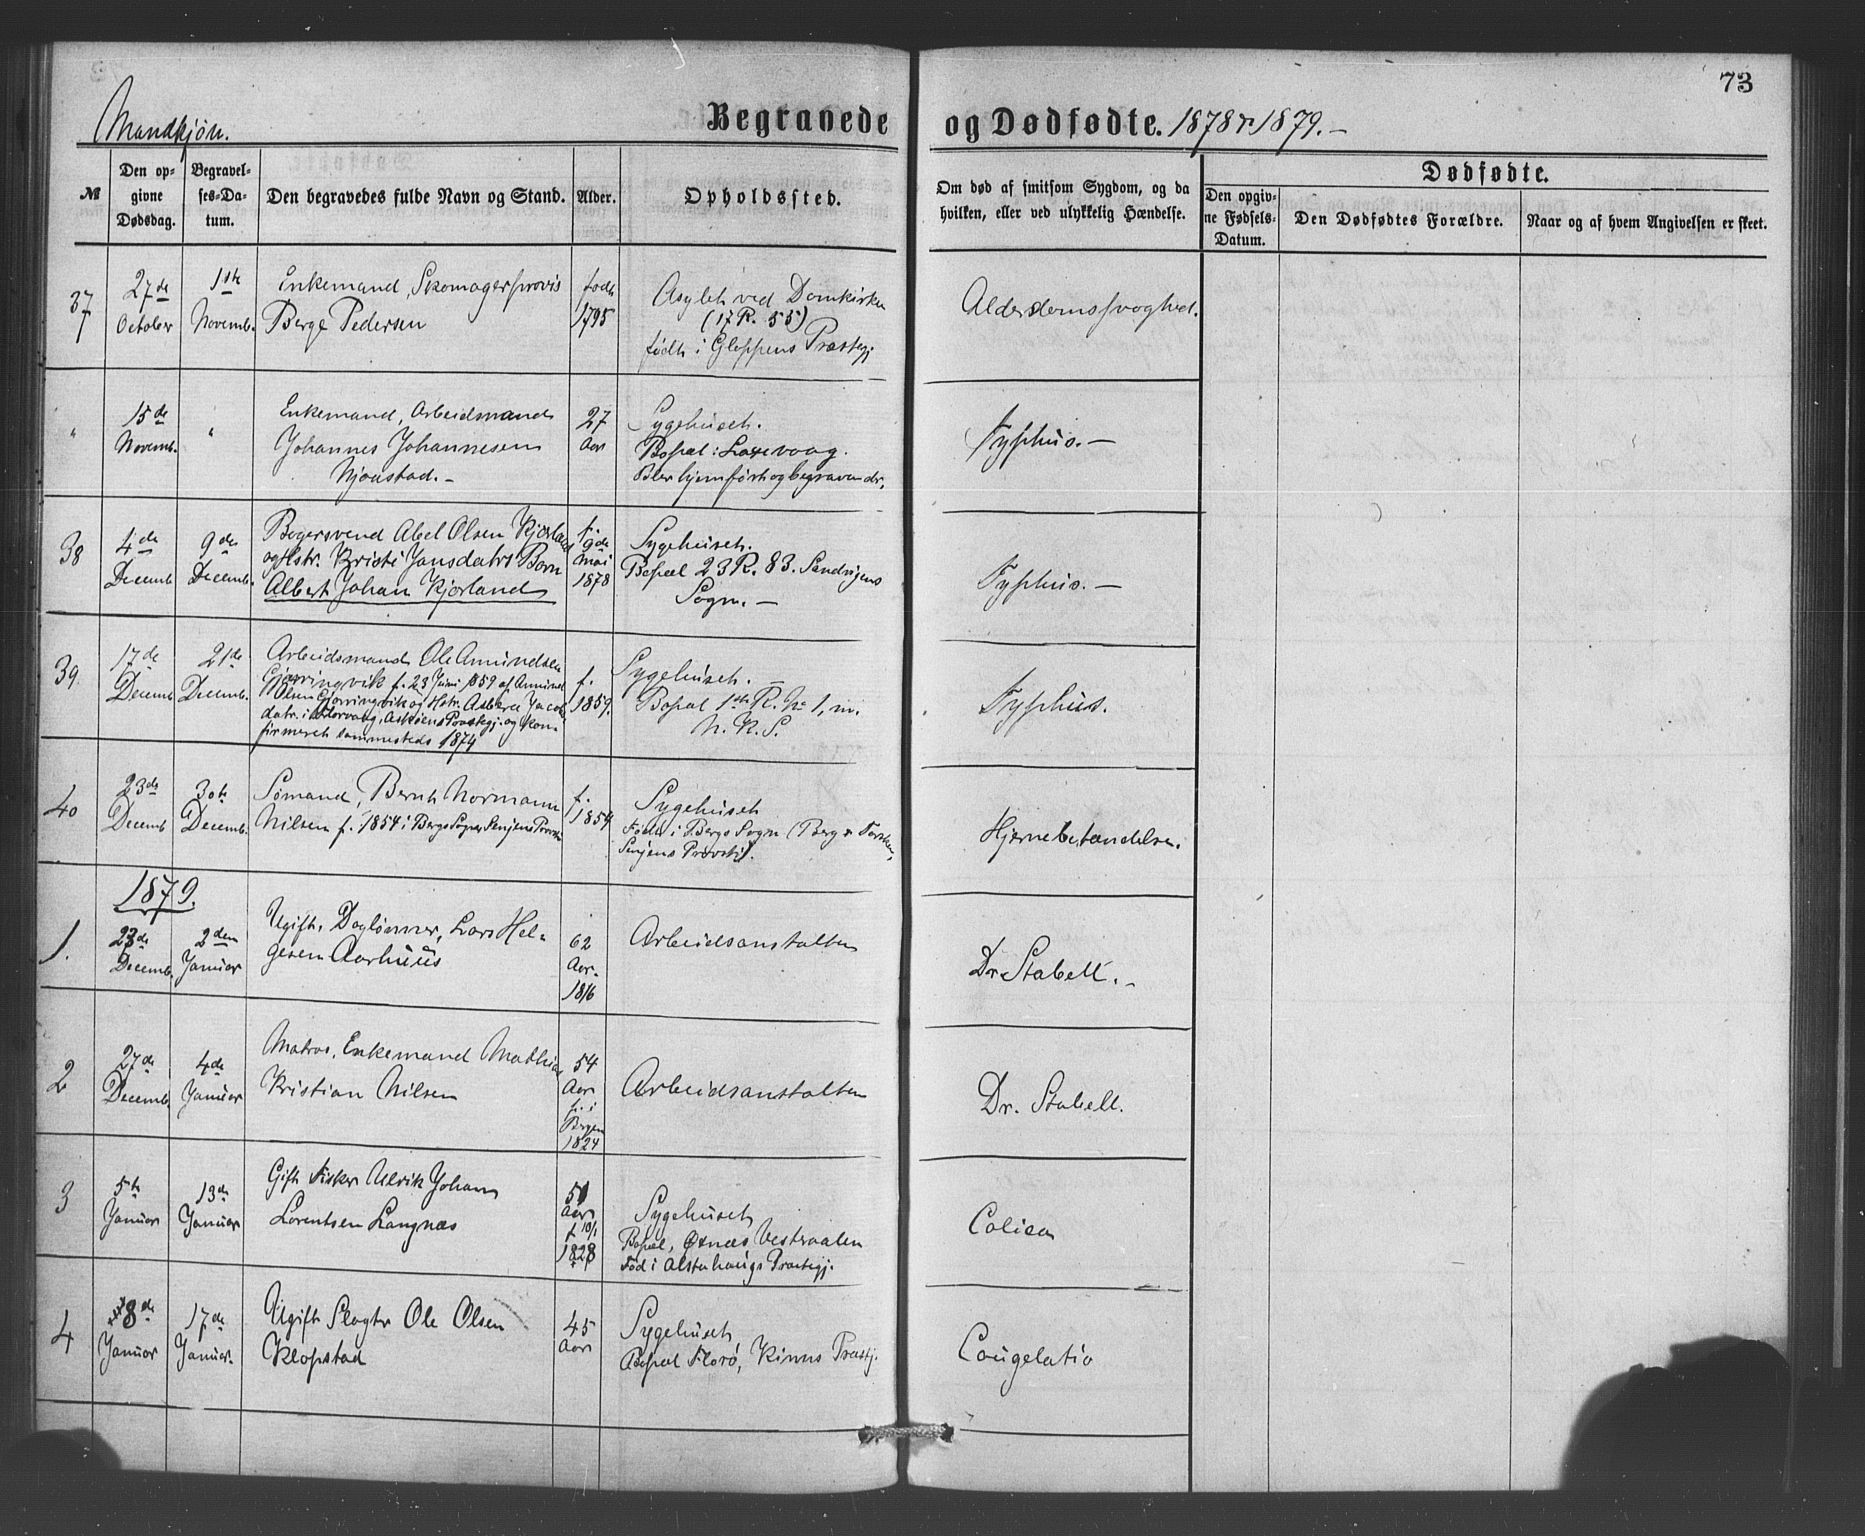 73
Mandkjøn.
Begravede og Dødfødte. 1878 & 1879.-
№
Den opgivne Dødsdag.
Begravelses-Datum.
Den begravedes fulde Navn og Stand.
Alder.
Opholdssted.
Om død af smitsom Sygdom, og da
hvilken, eller ved ulykkelig Hændelse.
Dødfødte.
Den opgivne Fødsels-Datum.
Den Dødfødtes Forældre.
Naar og af hvem Angivelsen er skeet.
37
27de October
1ste Novemb.
Enkemand, Skomagersvend
Berge Pedersen
født 1795
Asylet ved Domkirken
(17 R. 55)
født i Gloppens Præstegj.
Alderdomssvaghed.
"
15de Novemb.
"
Enkemand, Arbeidsmand
Johannes Johannesen
Njoustad.-
27 Aar
Sygehuset.
Bopæl: Laxevaag.
Blev hjemført og begraven der.
Typhus.-
38
4de Decemb
9de Decemb.
Bøgersvend Abel Olsen Kjørland
og Hstr. Kristi Jansdatrs Barn
Albert Johan Kjørland
f. 9de Mai 1878
Sygehuset.
Bopæl 23 R. 83. Sandvigens
Sogn.-
Typhus.-
39.
17de Decemb
21de Decemb.
Arbeidsmand Ole Amundsen
Gjørringvik f. 23 Juni 1859 af Amund
Olsen Gjørringvik og Hstr. Asberte Jacobs
datr. i Florvaag, Askøens Præstegj. og kon-
firmeret sammesteds 1874
f. 1859.
Sygehuset.-
Bopæl 1ste R. № 1, m.
N. K. S.
Typhus.
40
23de Decemb
30te Decemb.
Sømand, Bernt Normann
Nilsen f. 1854 i Bergs Sogn, Senjens Provsti
f. 1854
Sygehuset
Født i Bergs Sogn (Berg & Torsken,
Senjens Provsti).
Hjernebetændelse.
1879.
1.
23de Decemb.
2den Januar
Ugift, Daglønner, Lars Hel-
gesen Aarhuus
62 Aar. 1816
Arbeidsanstalten
Dr Stabell.-
2
27de Decemb.
4de Januar
Matros, Enkemand Mathias
Kristian Nilsen
54 Aar f. i Bergen 1824
Arbeidsanstalten
Dr. Stabell.
3
5te Januar
13de Januar
Gift Fisker Ulrik Johan
Lorentsen Langnæs
51 Aar f 10/1 1828
Sygehuset
Bopæl, Øxnæs Vesteraalen
Fød i Alstahougs Præstegj.
Colica
4
8de Januar
17de Januar.
Ugift Slagter Ole Olsen
Klopstad
45 Aar
Sygehuset
Bopæl Florø, Kinns Præstgj.
Congelatio